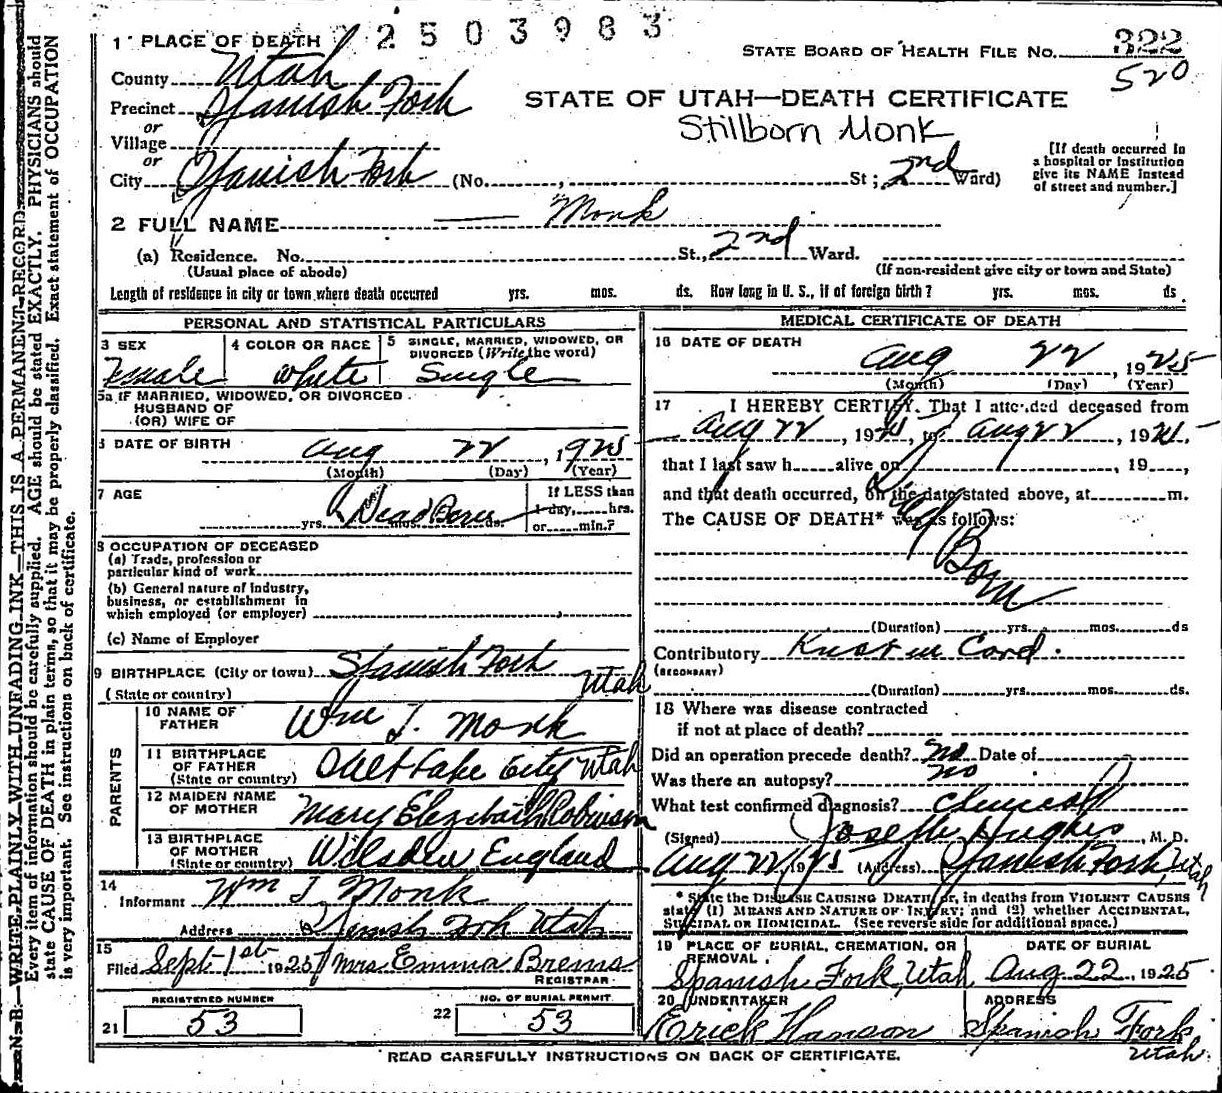 2503983
1 PLACE OF DEATH
STATE BOARD OF HEALTH FILE NO. 322
520
County Utah
Precinct Spanish Fork
or
Village
or
City Spanish Fork (No. , St ; 2nd Ward)
STATE OF UTAH—DEATH CERTIFICATE
Stillborn Monk
[If death occurred in
a hospital or institution
give its NAME instead
of street and number.]
2 FULL NAME — Monk
(a) Residence. No. St., 2nd Ward.
(Usual place of abode) (If non-resident give city or town and State)
Length of residence in city or town where death occurred yrs. mos. ds. How long in U. S., if of foreign birth ? yrs. mos. ds.
PERSONAL AND STATISTICAL PARTICULARS
3 SEX 4 COLOR OR RACE 5 SINGLE, MARRIED, WIDOWED, OR
DIVORCED (Write the word)
Female White Single
5a IF MARRIED, WIDOWED, OR DIVORCED
HUSBAND OF
(OR) WIFE OF
6 DATE OF BIRTH Aug 22, 1925
(Month) (Day) (Year)
7 AGE If LESS than
yrs. mos. ds. 1 day, hrs.
or min.?
Dead Born
8 OCCUPATION OF DECEASED
(a) Trade, profession or
particular kind of work
(b) General nature of industry,
business, or establishment in
which employed (or employer)
(c) Name of Employer
9 BIRTHPLACE (City or town) Spanish Fork
(State or country) Utah
PARENTS
10 NAME OF
FATHER Wm J. Monk
11 BIRTHPLACE
OF FATHER
(State or country) Salt Lake City Utah
12 MAIDEN NAME
OF MOTHER Mary Elizabeth Robinson
13 BIRTHPLACE
OF MOTHER
(State or country) Wilsden England
14
Informant Wm J Monk
Address Spanish Fork Utah
15
Filed Sept 1st 1925 Mrs Emma Brems
REGISTRAR
REGISTERED NUMBER NO. OF BURIAL PERMIT
21 53 22 53
MEDICAL CERTIFICATE OF DEATH
16 DATE OF DEATH
Aug 22, 1925
(Month) (Day) (Year)
17 I HEREBY CERTIFY, That I attended deceased from
Aug 22, 1925, to Aug 22, 1925
that I last saw h alive on , 19 ,
and that death occurred, on the date stated above, at m.
The CAUSE OF DEATH* was as follows:
Dead Born
(Duration) yrs. mos. ds
Contributory Knot in Cord.
(SECONDARY)
(Duration) yrs. mos. ds.
18 Where was disease contracted
if not at place of death?
Did an operation precede death? no Date of
Was there an autopsy? no
What test confirmed diagnosis? Clinical
(Signed) Joseph Hughes, M. D.
Aug 22 1925 (Address) Spanish Fork, Utah
* State the DISEASE CAUSING DEATH, or, in deaths from VIOLENT CAUSES
state (1) MEANS AND NATURE OF INJURY; and (2) whether ACCIDENTAL,
SUICIDAL OR HOMICIDAL. (See reverse side for additional space.)
19 PLACE OF BURIAL, CREMATION, OR
REMOVAL. DATE OF BURIAL
Spanish Fork, Utah Aug 22, 1925.
20 UNDERTAKER ADDRESS
Erick Hanson Spanish Fork
Utah
READ CAREFULLY INSTRUCTIONS ON BACK OF CERTIFICATE.
N. B.—WRITE PLAINLY WITH UNFADING INK—THIS IS A PERMANENT RECORD
Every item of information should be carefully supplied. AGE should be stated EXACTLY. PHYSICIANS should
state CAUSE OF DEATH in plain terms, so that it may be properly classified. Exact statement of OCCUPATION
is very important. See instructions on back of certificate.